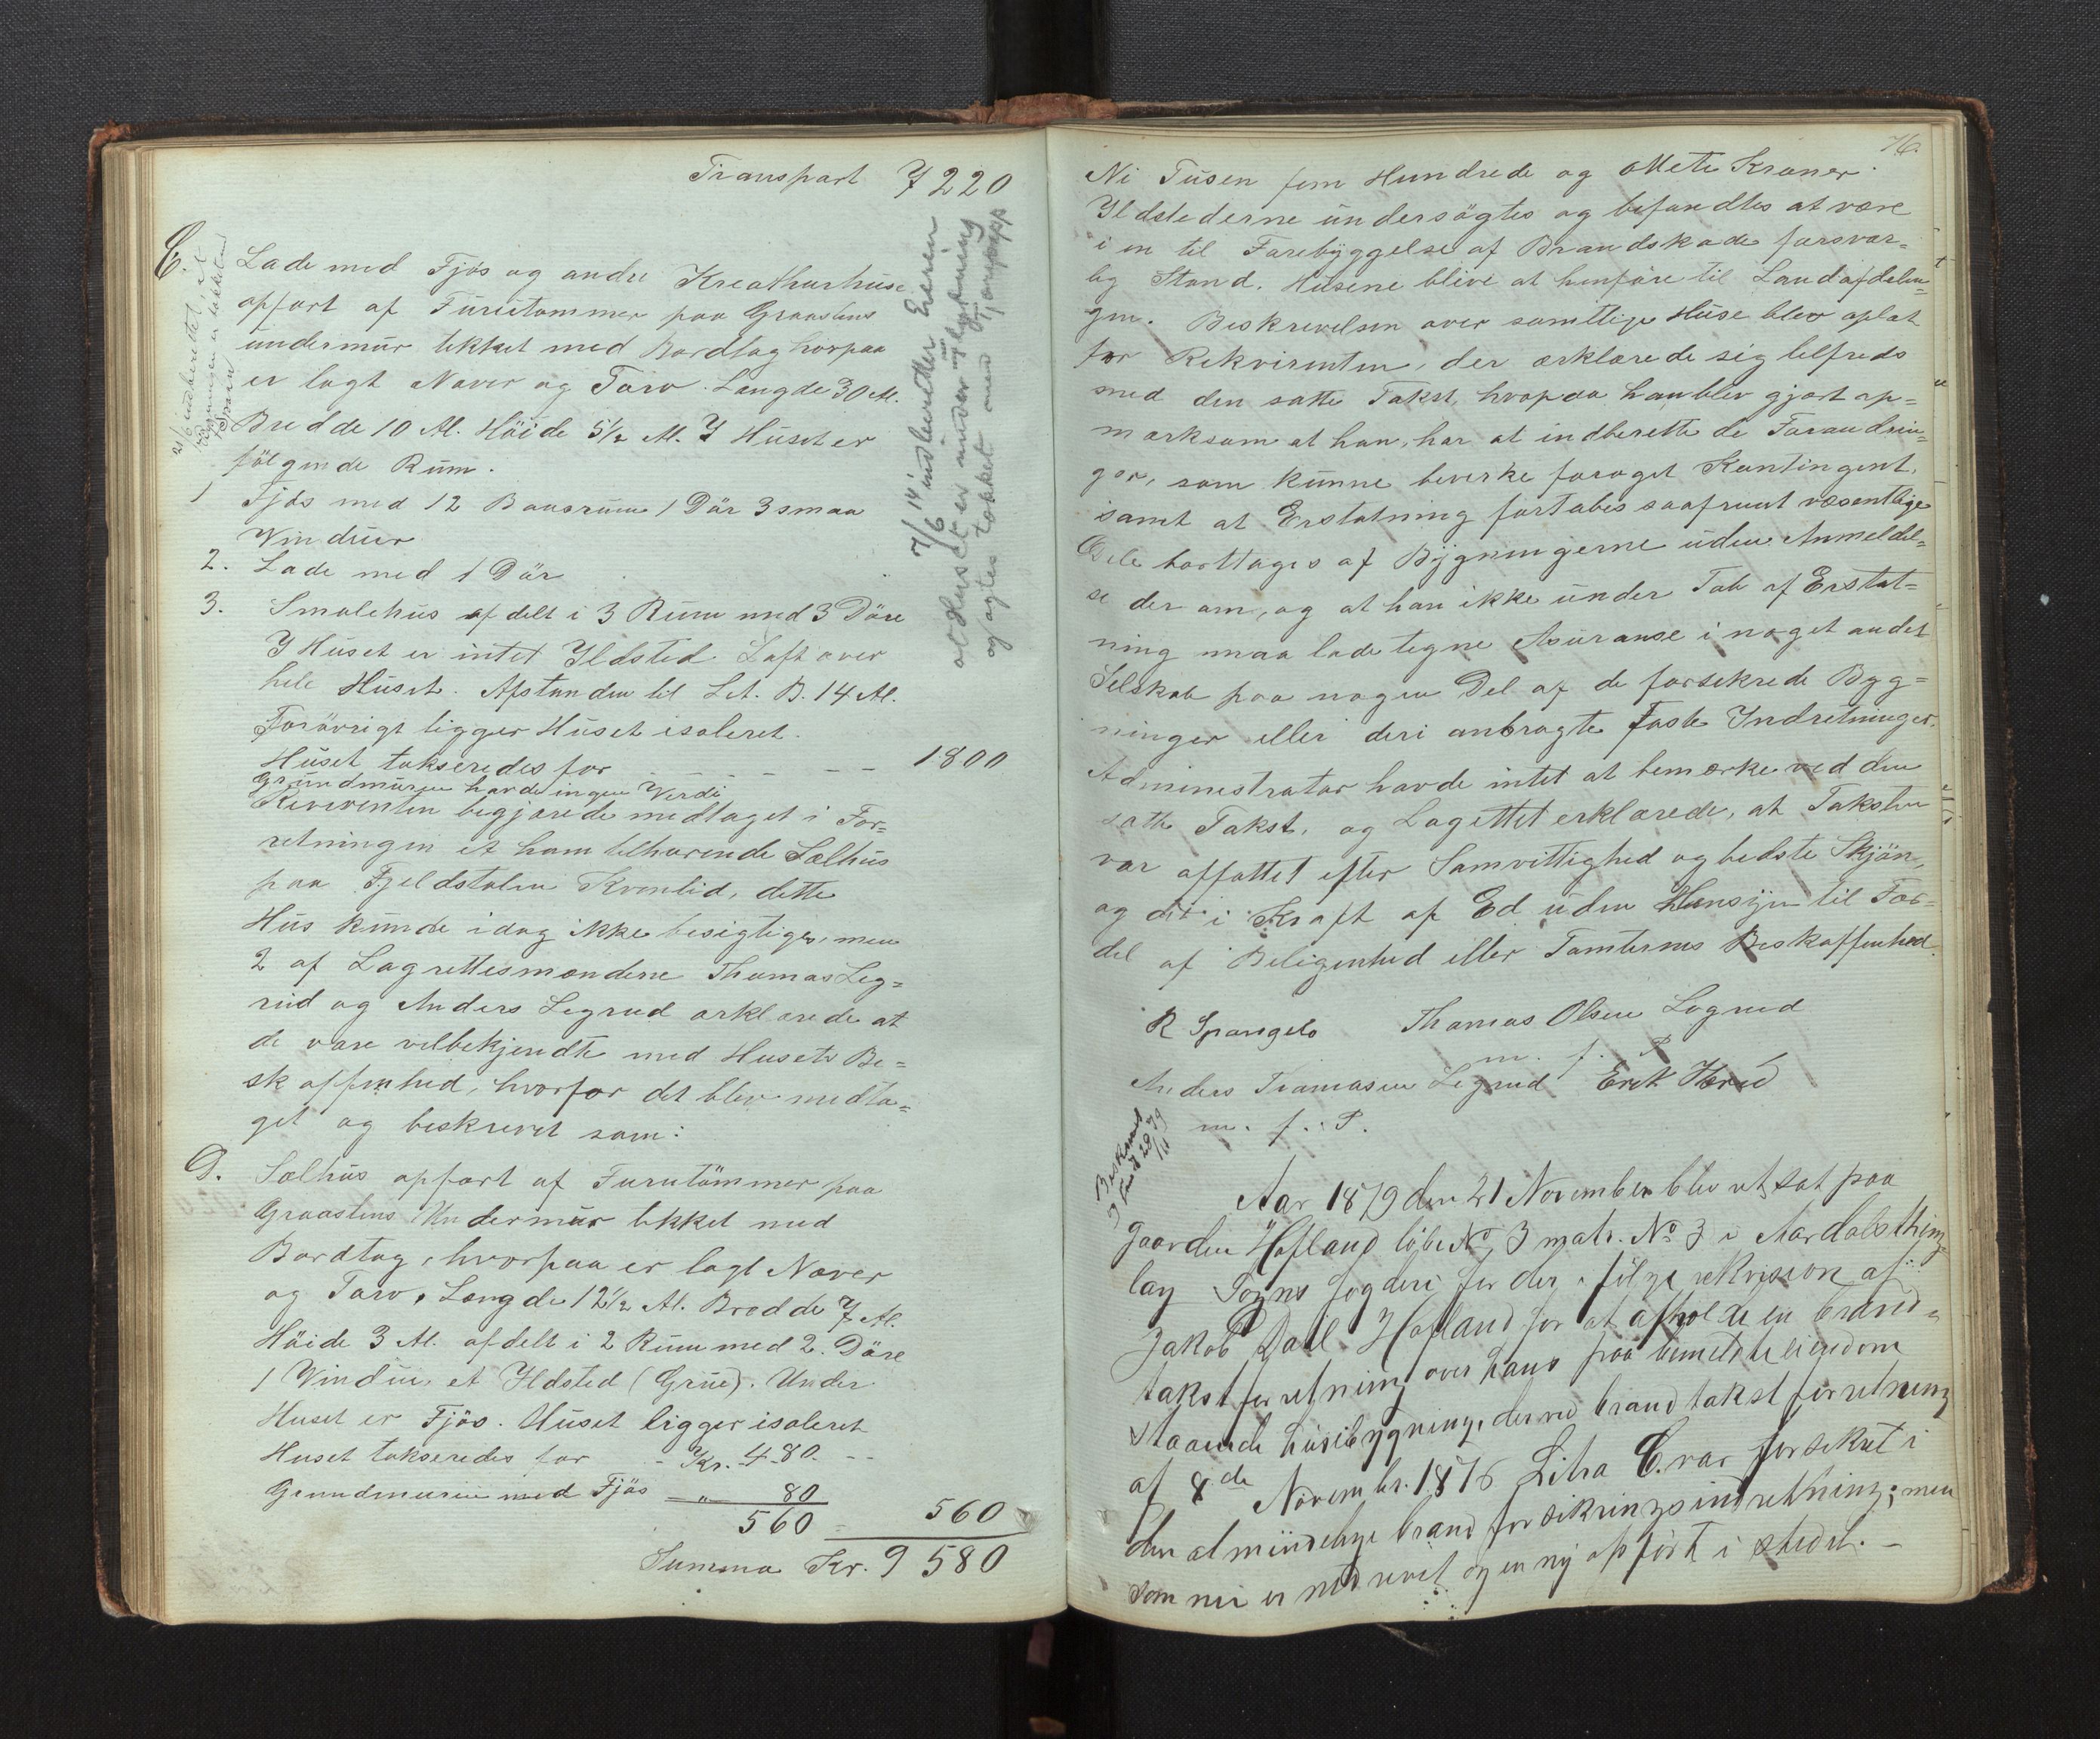 Transport 7220
C. Lade med Fjös og andre Kreathurhuse
opfort af Furutømmer paa Graastens
undermur tekket med Bordtag hvorpaa
er lagt Næver og Torv. Længde 30 Al.
Bredde 10 Al. Höide 5 1/2 Al. I Huset er
fölgende Rum.
1 Fjös med 12 Baasrum 1 Dör 3 smaa
Vinduer
2. Lade med 1 Dör
3. Smalehus afdelt i 3 Rum med 3 Döre
I Huset er intet Ildsted Loft over
hele Huset. Afstanden til Lit. B. 14 Al.
Forövrigt ligger Huset isoleret.
Huset takseredes for - - - - - 1800
Grundmuren havde ingen Verdi
Reverenten begjærede medtaget i For=
retningen et ham tilhørende Sælhus
paa Fjeldstølen Kvenlid, dette
Hus kunde idag ikke besigtiges, men
2 af Lagrettesmændene Thomas Leg=
rud og Anders Legrud erklærede at
de vare velbekjendte med Husets Be=
skaffenhed, hvorfor det blev medta=
get og beskrevet som:
D. Sælhus opfört af Furutömmer paa
Graastens Undermur tekket med
Bordtag, hvorpaa er lagt Næver
og Torv. Længde 12 1/2 Al. Bredde 7 Al.
Höide 3 Al. afdelt i 2 Rum med 2. Döre
1 Vindue, et Ildsted (Grue). Under
Huset er Fjös. Huset ligger isoleret
Huset takseredes for - Kr. 480. - -
Grundmuren med Fjös - " 80
560 - 560
Summa Kr. 9580
21/6 indberettet, at
bygningen er tækket med
Spaan
7/6 14 indberetter Eieren
at Huset er under nybygning
og agtes tækket med
76.
Ni Tusen fem Hundrede og ottete Kroner.
Ildstederne undersögtes og befandtes at være
i en til Forebyggelse af Brandskade forsvar=
lig Stand. Husene blive at henføre til Landafdelin=
gen. Beskrivelsen over samtlige Huse blev oplæst
for Rekvirenten, der erklærede sig tilfreds
med den satte Takst, hvorpaa han blev gjort op=
mærksom at han, har at indberette de Forandrin=
ger, som kunne bevirke foröget Kontingent,
samt at Erstatning fortabes saafremt væsentlige
Dele borttages af Bygningerne uden Anmeldel=
se derom, og at han ikke under Tab af Erstat=
ning maa lade tegne Asuranse i noget andet
Selskab paa nogen Del af de forsekrede Byg=
ninger eller deri anbragte faste Indretninger.
Administrator havde intet at bemærke ved den
satte Takst, og Lagrettet erklærede, at Taksten
var affattet efter Samvittighed og bedste Skjön,
og det i Kraft af Ed uden Hensyn til For=
del af Beligenhed eller Tomternes Beskaffenhed.
R Spangelo Thomas Olsen Legrud
m. f. P
Anders Tomasen Legrud Erik Hærud
m. f. P.
Beskrevet
28/11 79
Aar 1879 den 21 November blev ret sat paa
gaarden Hofland löbe No 3 matr. No 3 i Aardals thing
lag Sogns fogderi ifölge rekvision af
Jakob Dail Hofland for at afholde en brand=
takst forretning over hans paa bemeldte eiendom
staaende huusbygning, der ved brandtakst forretning
af 8de Novembr. 1876 Litra C. var forsekret i
den almindelige brand forsikringsindretning; men
som nu er nedrevet og en ny opfört i stedet. -